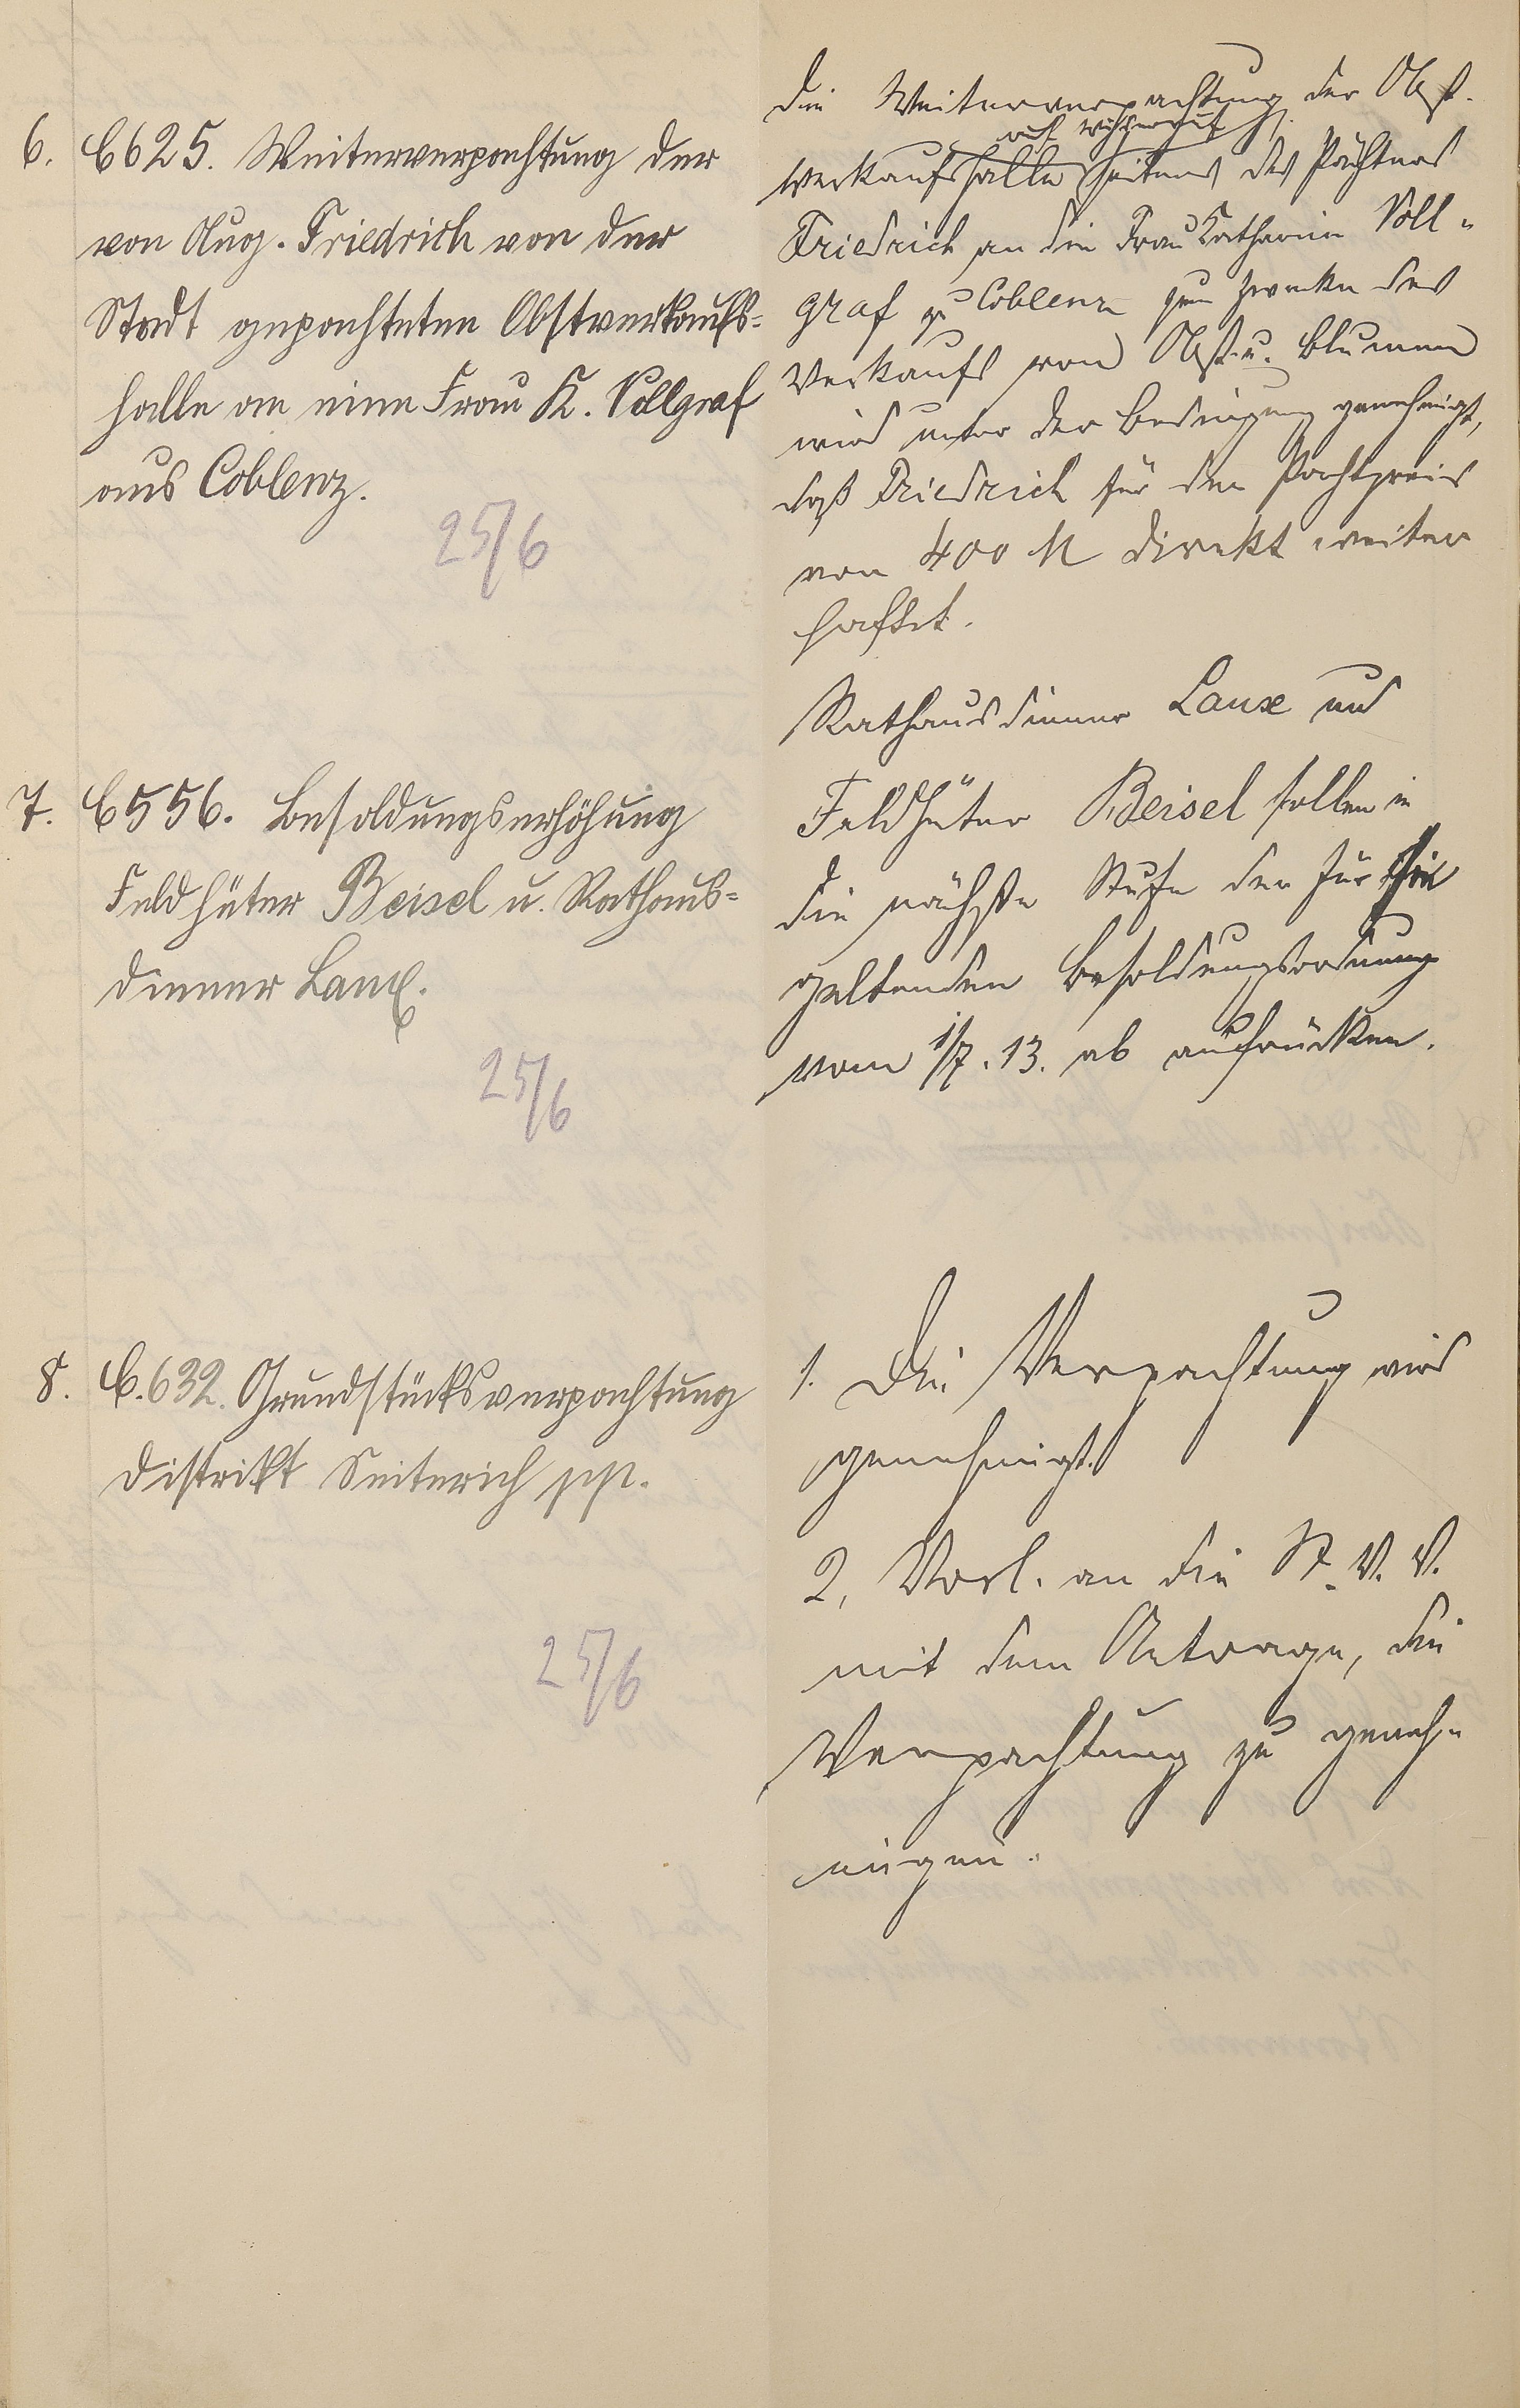 6. C 625. Weiterverpachtung der
von Aug. Friedrich von der
Stadt gepachteten Obstverkaufs-
halle an eine Frau K. Vollgraf
aus Coblenz.
25/6
Die Weiterverpachtung der Obst-
auf
verkaufshalle seitens des Pächters
Friedrich an die Frau Katharina Voll-
graf zu Coblenz zum Zwecke des
Verkaufs von Obst u. Blumen
wird unter der Bedingung genehmigt,
daß Friedrich für den Pachtpreis
von 400 M direkt weiter
haftet.
7. C 556. Besoldungserhöhung
Feldhüter Beisel u. Rathaus-
diener Laux.
25/6
Rathausdiener Laux und
Feldhüter Beisel sollen in
die nächste Stufe der für sie
geltenden Besoldungsordnung
vom 1/7.13. ab aufrücken.
8. C. 632. Grundstücksverpachtung
Distrikt Seiterich pp.
25/6
1. Die Verpachtung wird
genehmigt.
2, Vorl. an die St. V. V.
mit dem Antrage, die
Verpachtung zu geneh-
migen.